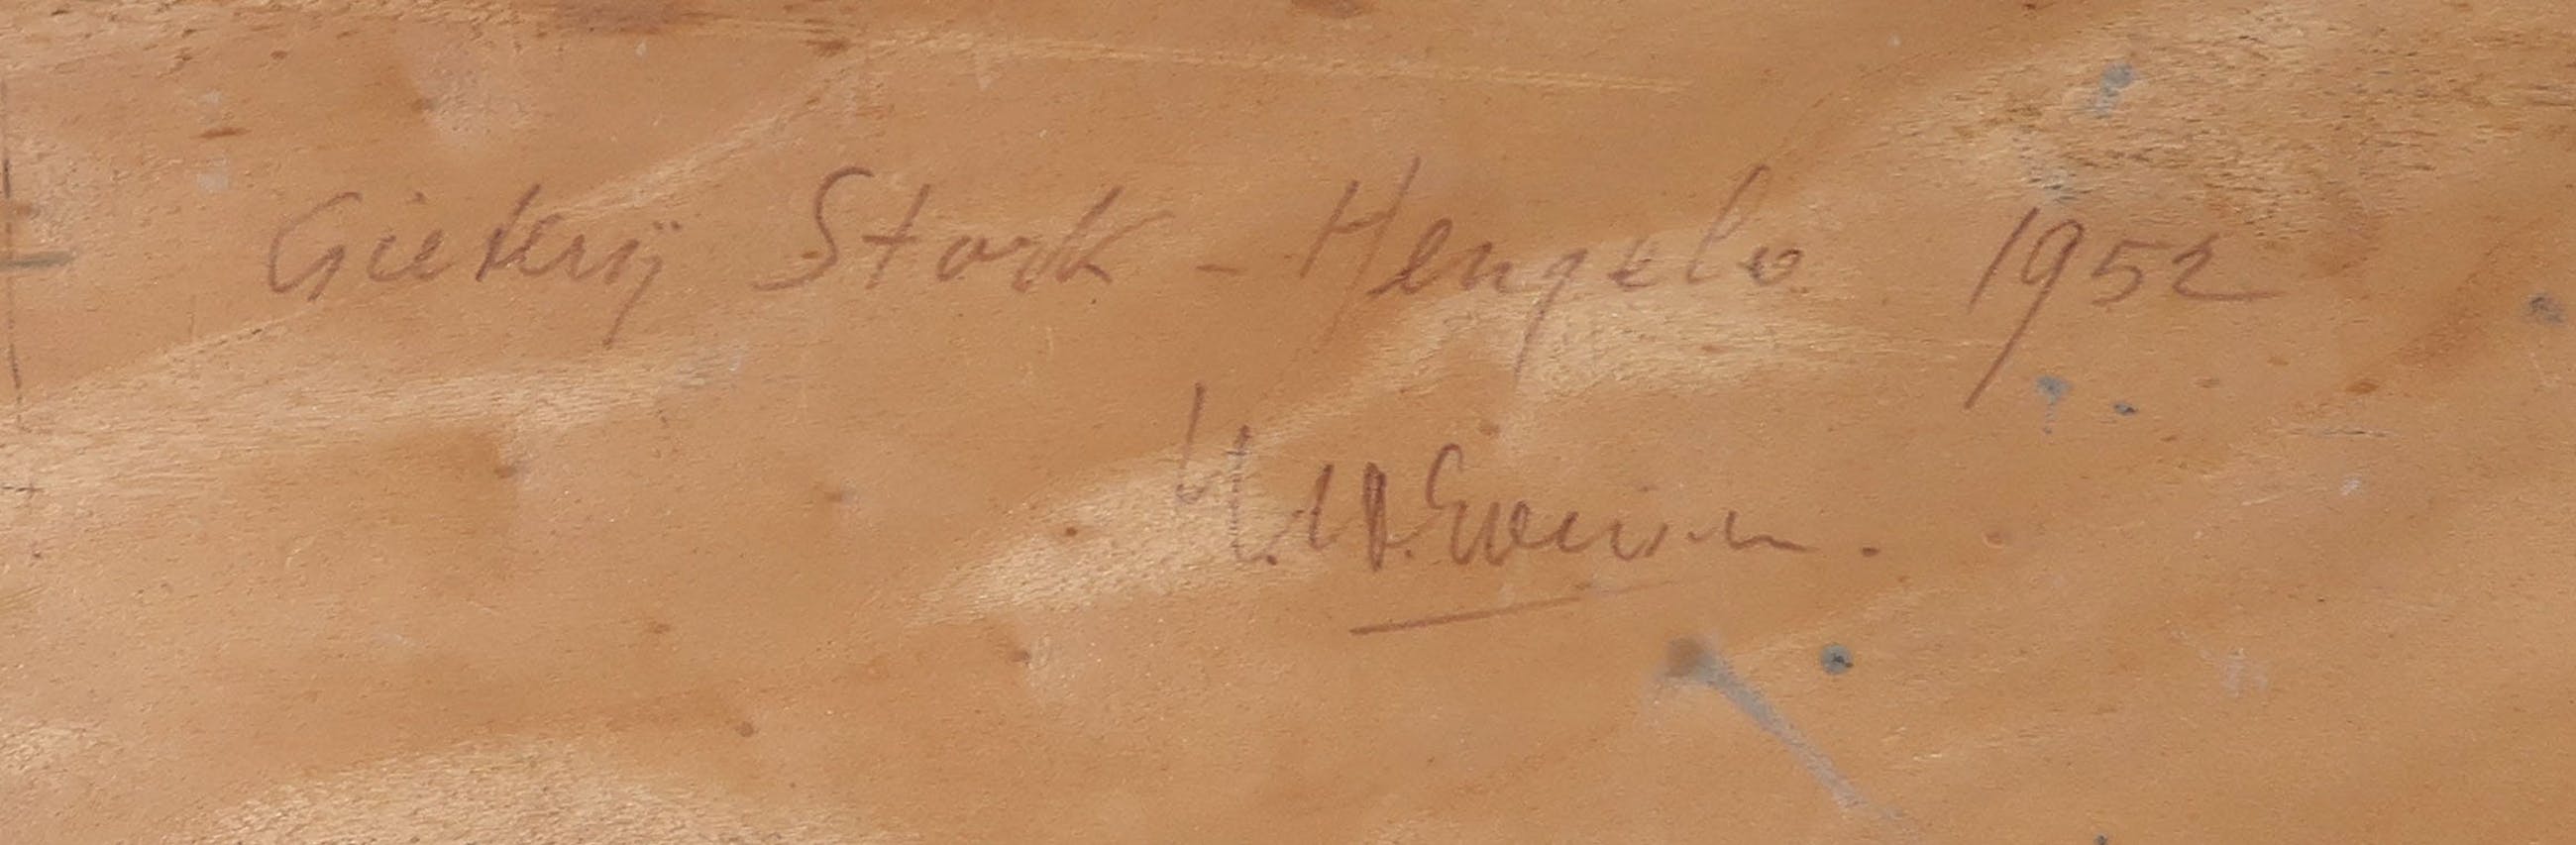 Gieterij Stork - Hengelo 1952
H.